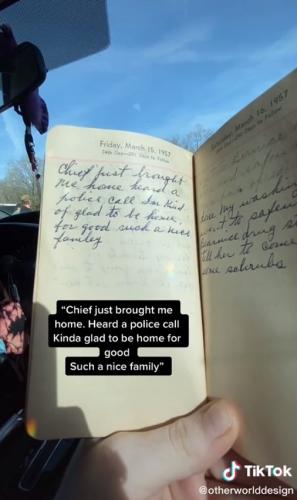 Friday, March 15, 1957
74th Day—291 Days to Follow
Chief just brought
me home heard a
police call Im kind
of glad to be home,
for good such a nice
family
Saturday, March 16, 1957
Days to Follow
my washing
went to
drug
her to come
some schrubs
"Chief just brought me
home. Heard a police call
Kinda glad to be home for
good
Such a nice family"
TikTok
@otherworlddesign